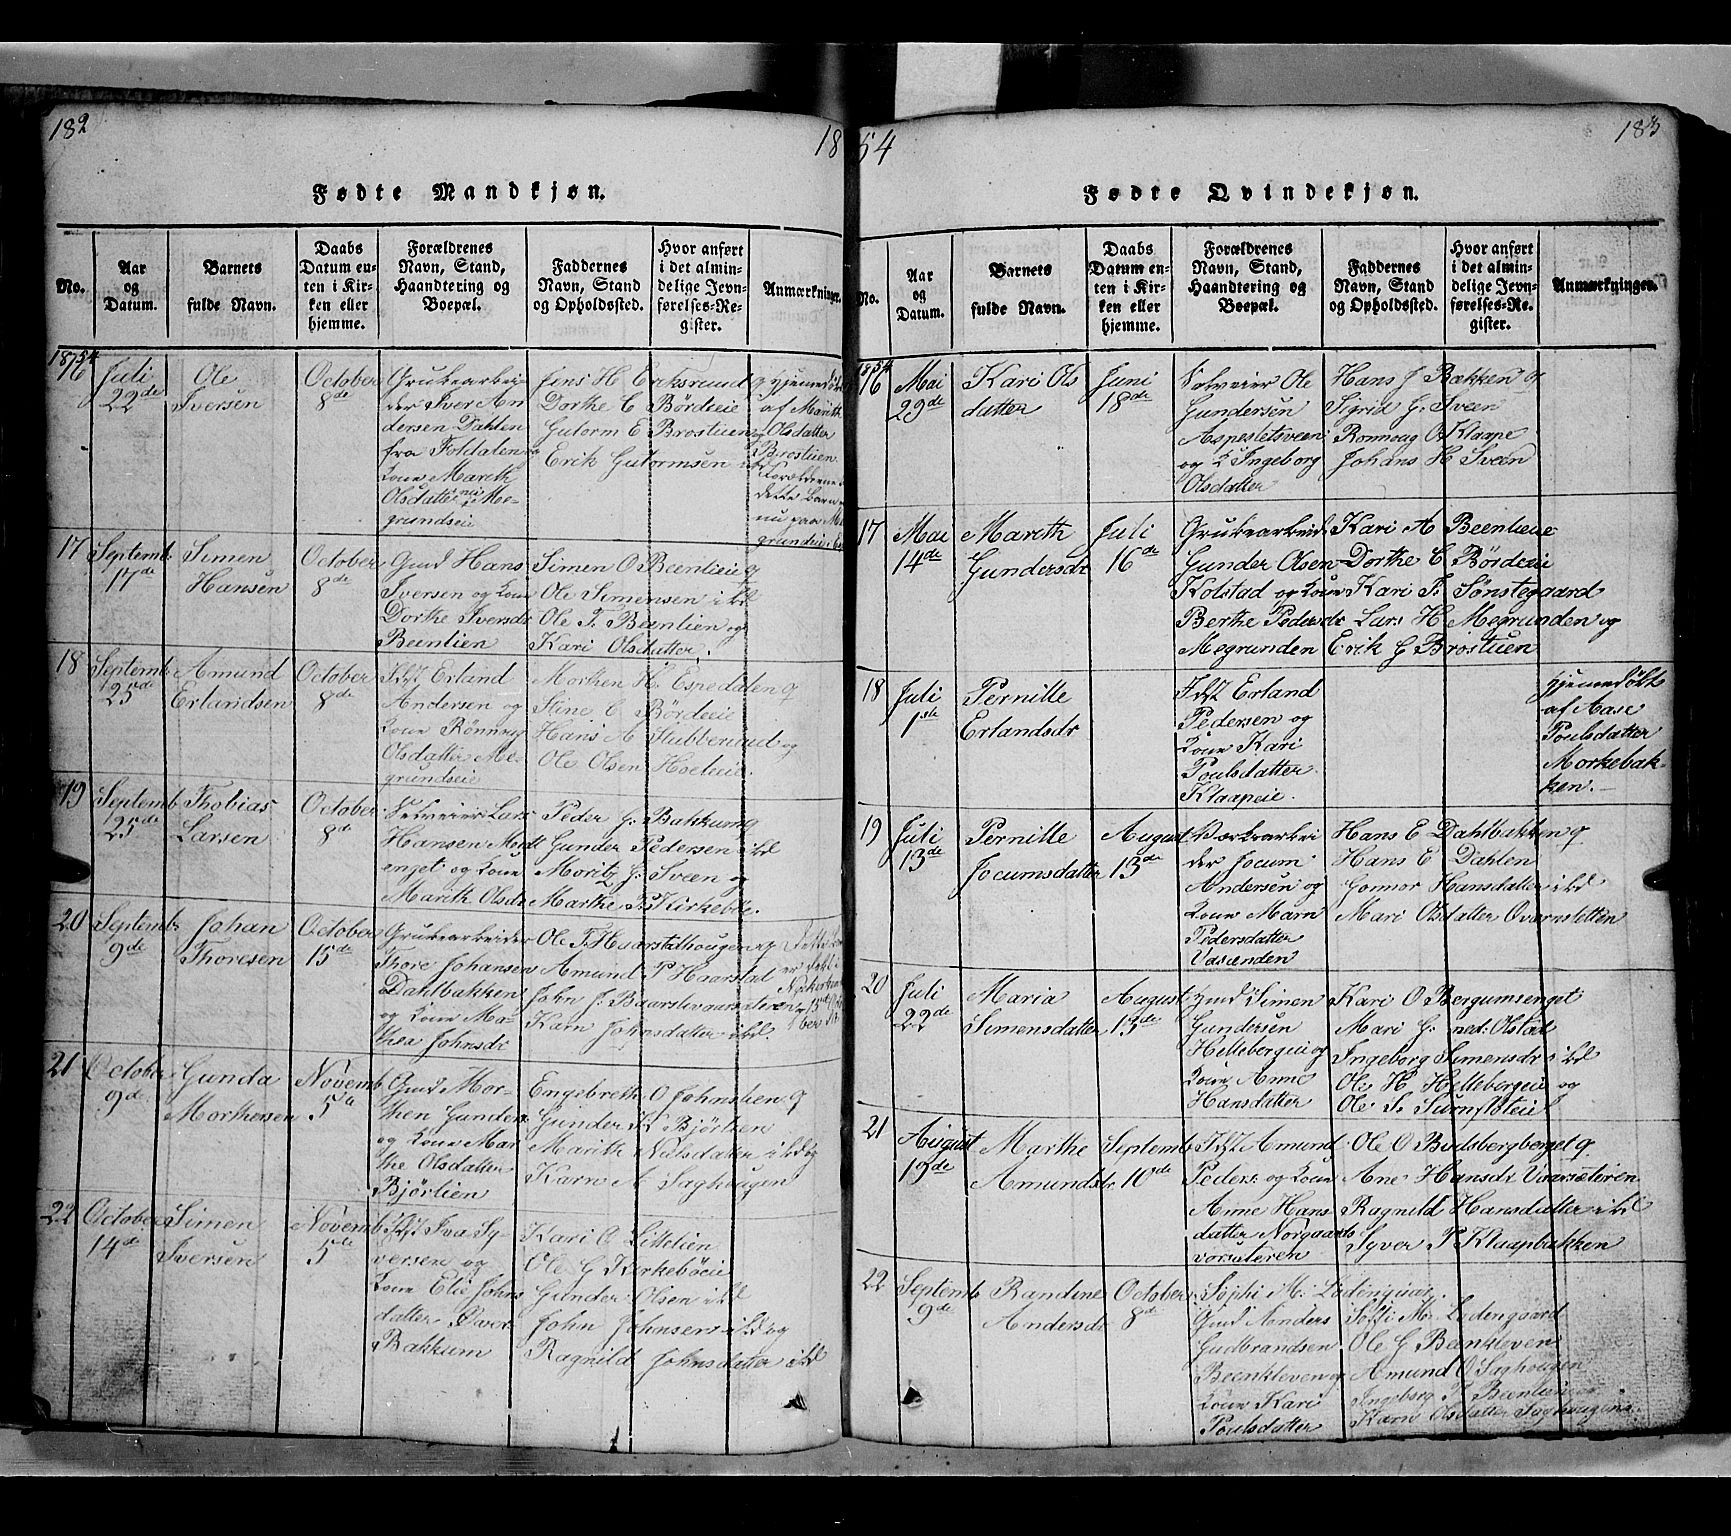 182
18
Fødte Mandkjøn.
No.
Aar
og
Datum.
Barnets
fulde Navn.
Daabs
Datum en-
ten i Kir-
ken eller
hjemme.
Forældrenes
Navn, Stand,
Haandtering og
Boepæl.
Faddernes
Navn, Stand
og Opholdssted.
Hvor anført
i det almin-
delige Jevn-
førelses-Re-
gister.
Anmærkninger.
1854
16
Juli
22de
Ole
Iversen
October
8de
Grubearbei-
der Iver An
dersen Dahlen
fra Foldalen
Kone Marith
Olsdatter
grundseie
Jens H Eriksrund og
Dorthe C Børdeeie
Gulorm E Brostuen
Erik Gutormsen
Hjemmedøbt
af Marith
Olsdatter
Brostuen
Forældrene
dette barn
nu paa Me
grundseie
17
Septemb
17de
Simen
Hansen
October
8de
Gmd Hans
Iversen og Kone
Dorthe Iversdr
Beenlien
Simen O Beenlieie og
Ole Simensen ibd
Ole T. Beenlien og
Kari Olsdatter.
18
Septemb
25de
Amund
Erlandsen
October
8de
Erland
Andersen og
Kone Rønnug
Olsdatter Me-
grundseie
Morken H. Espedalen og
Stine C Børdeeie
Hans A Stubberud og
Ole Olsen Hoeleeie.
19
Septemb
25de
Thobias
Larsen
October
8de
Selveier Lars
Hansen Medt
enget og Kone
Marith Olsdr
Peder G. Bakkum og
Gunder Pedersen ibd
Moritz G. Sveen og
Marthe P. Kirkebye.
20
Septembr
9de
Johan
Thoresen
October
15de
Grubearbeider
Thore Johansen
Dahlbakken
og Kone Ma-
thea Johnsdr
Ole T. Haarstadhougen og
Amund P Haarstad
John J. Baarslivarsæteren
Karn Johnsdatter ibd.
21
October
9de
Gunda
Morthensen
Novemb
5te
Gmd Mor-
then Gunders.
og Kone Mar
the Olsdatter
Bjørlien
Engebreth O Johnslien og
Gunder K Bjørlien
Marith Nielsdatter ibd og
Karn A Saghougen
22
October
14de
Simen
Iversen
Novemb
5te
Iva Sy-
versen og
Kone Elie Johns
datter
Bakkum
Kari O Littelien
Ole G Kirkebøeie
Gunder Olsen ibd
John Johnsen ibd og
Ragnild Johnsdatter ibd
54
183
Fødte Qvindekjøn.
No.
Aar
og
Datum.
Barnets
fulde Navn.
Daabs
Datum en-
ten i Kir-
ken eller
hjemme.
Forældrenes
Navn, Stand,
Haandtering og
Boepæl.
Faddernes
Navn, Stand
og Opholdssted.
Hvor anført
i det almin-
delige Jevn-
førelses-Re-
gister.
Anmærkninger.
1854
16
Mai
29de
Kari Ols
datter
Juni
18de
Selveier Ole
Gundersen
Aspesletsveen
og K Ingeborg
Olsdatter
Hans J Bækken og
Sigrid G. Sveen
Ronnoug O Klaape
Johans H Sveen
17
Mai
14de
Marith
Gundersdr
Juli
16de
Grubearbeid.
Gunder Olsen
Kolstad og Kone
Berthe Pedersdr
Megrunden
Kari A Beenlieie
Dorthe C Børdeeie
Kari T. Sønstegaard
Lars H Megrunden og
Erik G Brostuen
18
Juli
1ste
Pernille
Erlandsdr
Erland
Pedersen og
Kone Kari
Poulsdatter
Klaapeie.
Hjemmedøbt
af Aase
Poulsdatter
Morkebak-
ken.
19
Juli
13de
Pernille
Jocumsdatter
August
13de
Værkarbei
der Jocum
Andersen og
Kone Marn
Pedersdatter
Vasænden
Hans E Dahlbakken og
Hans E Dahlen
Gonnor Hansdatter ibd
Mari Olsdatter Qvernstetten
20
Juli
22de
Maria
Simensdatter
August
13de
Hmd Simen
Gundersen
Hellebergeie og
Kone Anne
Hansdatter
Kari O Bergumsenget
Mari G. ned: Olstad
Ingeborg Simensdr ibd
Ole H Hellebergeie og
Ole S.
21
August
19de
Marthe
Amundsdr
Septemb
10de
Amund
Peders. og Kone
Anne Hans
datter Norgaards
vorsæteren
Ole O Bulsbergberget og
Ane Hansdr Vaarsæteren
Ragnild Hansdatter ibd
Syver P Klaapbakken
22
Septemb
9de
Randine
Andersdr
October
8de
Søphi M. Ladengaar.
Gmd Anders
Gudbrandsen
Beenkleven og
Kone Kari
Poulsdatter
Soffi M. Ladengaard
Ole G Beenkleven
Amund O Saghougen
Ingeborg P Beenlien
Karn Olsdatter Saghougen.